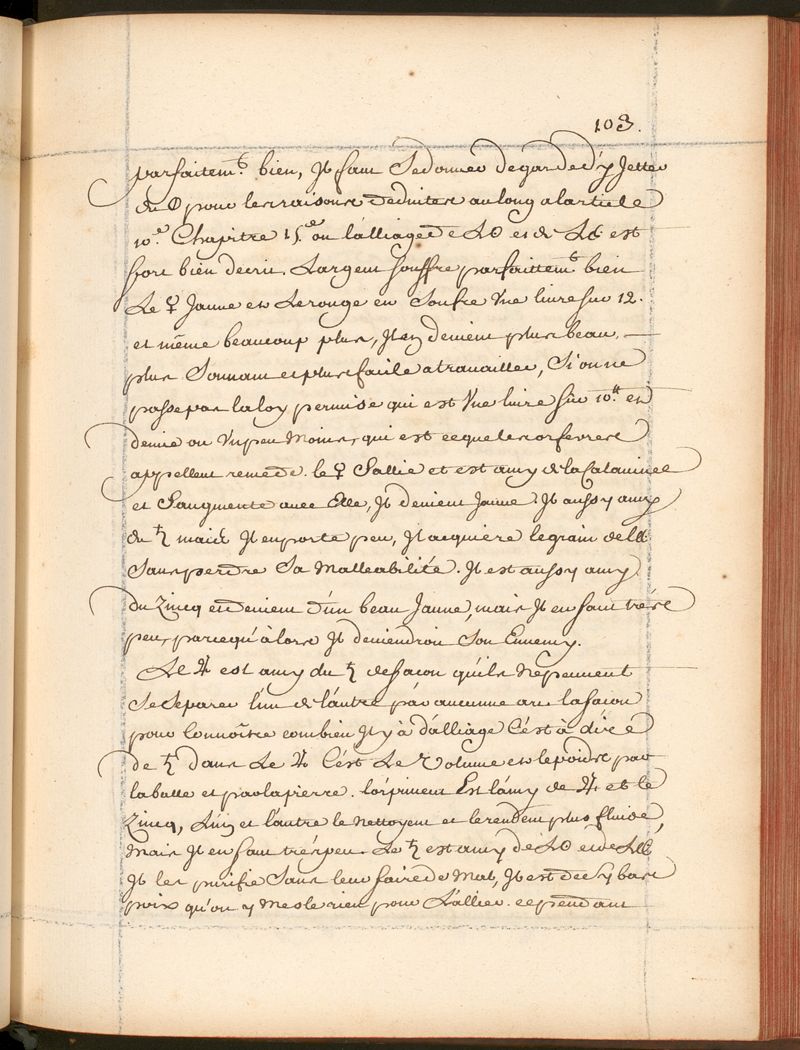 103.
parfaitem.t bien, Jl faut Se donner de garde d'y Jetter
du ☉ pour les raisons deduites au long a larticle
10.e Chapitre 15.e ou l'alliage de L☉ et de L☾ est
fort bien decrit. Largent souffre parfaittem.t bien
Le ♀ Jaune et Le rouge en Soufre Vne livre sur 12.
et même beaucoup plus, Jl en devient plus beau,
plus Sonnant et plus facile a travailler, Si on ne
passe pas la loy permise qui est Vne livre sur 10.tt et
demie ou Vn peu Moins, qui est ce que les orfevres
appellent remede. le ♀ Sallie et est amy de la Calamine
et Saugmente avec Elle, Jl devient Jaune Jl aussy amy
du ♄ mais Jl en porte peu, Jl acquiere le grain de l☾
Sans perdre Sa Malleabilité. Jl est aussy amy
du Zincq et devient d'un beau Jaune, mais Jl en faut trés
peu, parcequ'àlors Jl deviendroit Son Ennemy.
Le ♃ est amy du ♄ de facon qu'ils Ne peuvent
Se Separer l'un de l'autre par aucunne art. la facon
pour Connoître combien Jl y à d'alliage C'est à dire
de ♄ dans Le ♃ C'est Le Volume et le poids par
la balle et par la pierre. l'orpiment Est l'amy de ♃ et le
Zincq, L'un et l'autre le Nettoyent et le rendent plus fluide,
Mais Jl en faut très peu. Le ♄ est amy de L☉ et de L☾
Jl les purifie Sans leur faire de Mal, Jl est de Sy bas
prix qu'on y Mesle rien pour L'allier. cependant